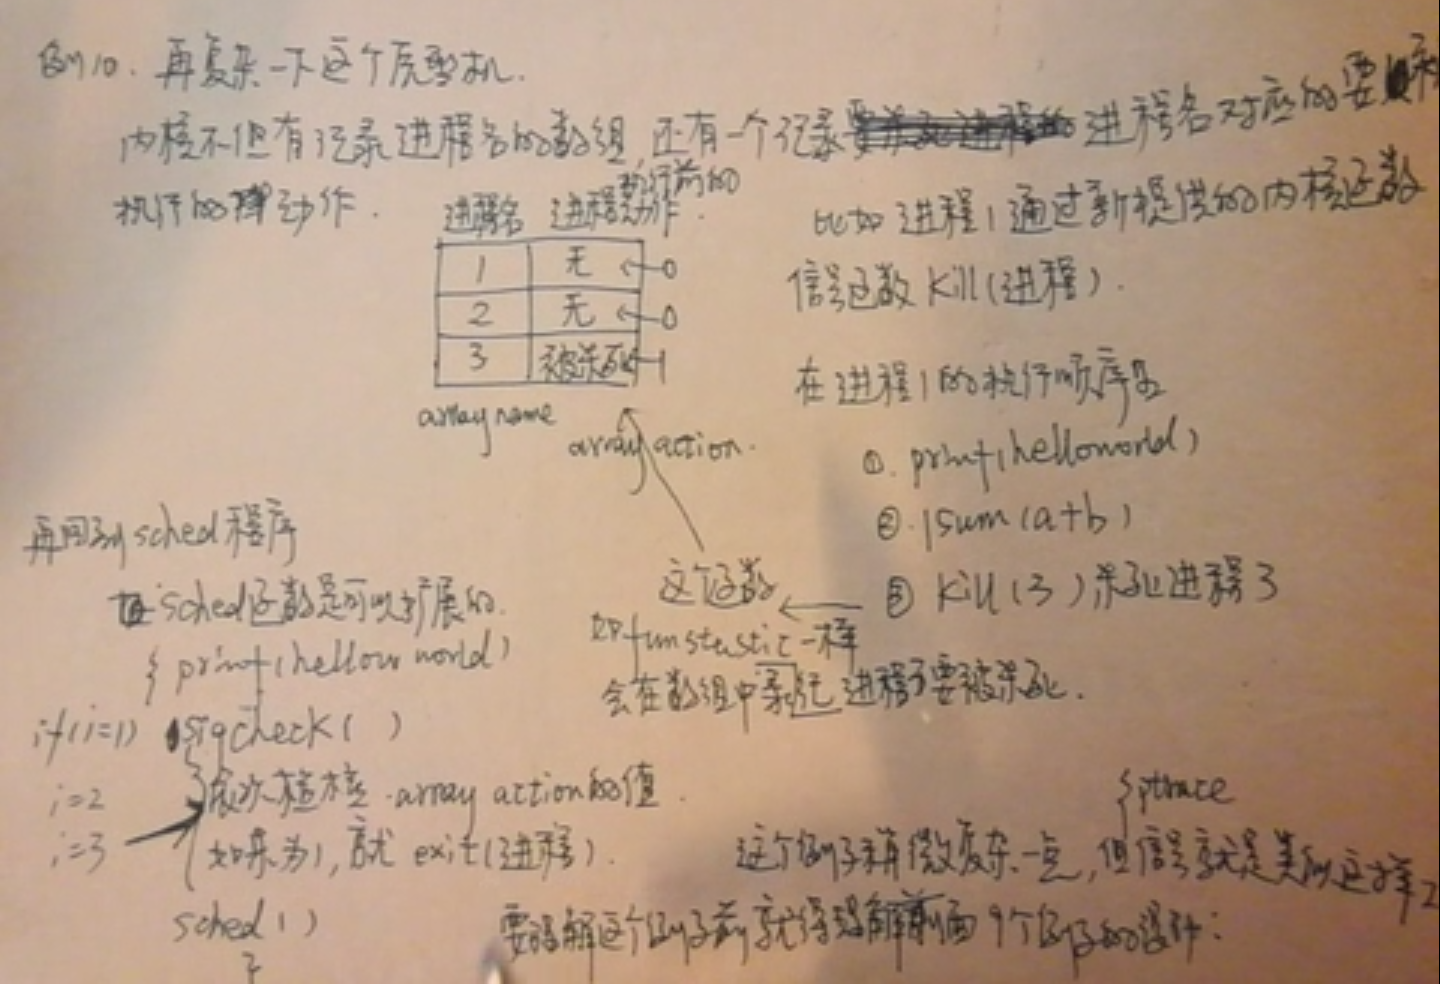 例10. 再复杂一下这个虚拟机.
内核不但有记录进程名的数组 还有一个记录 进程名对应的要
执行的 动作.
进程名 进程执行前的动作.
1 无 ← 0
2 无 ← 0
3 被杀死 ← 1
array name
array action.
比如进程1通过新提供的内核函数
信号函数 kill(进程).
在进程1的执行顺序是
①. printf(helloworld)
②. sum(a+b)
③ kill(3)杀死进程3
这个函数
如 一样
会在数组中 进程3要被杀死.
再回到sched程序
sched函数是可以扩展的.
{ printf(hellow world)
if(i=1) sigcheck( )
i=2 {依次检核 array action的值.
i=3 如果为1, 就 exit(进程).
sched()
}
{ptrace
这个例子稍微复杂一点, 但信号就是类似这样
要理解这个例子前就得理解前面9个例子的设计: